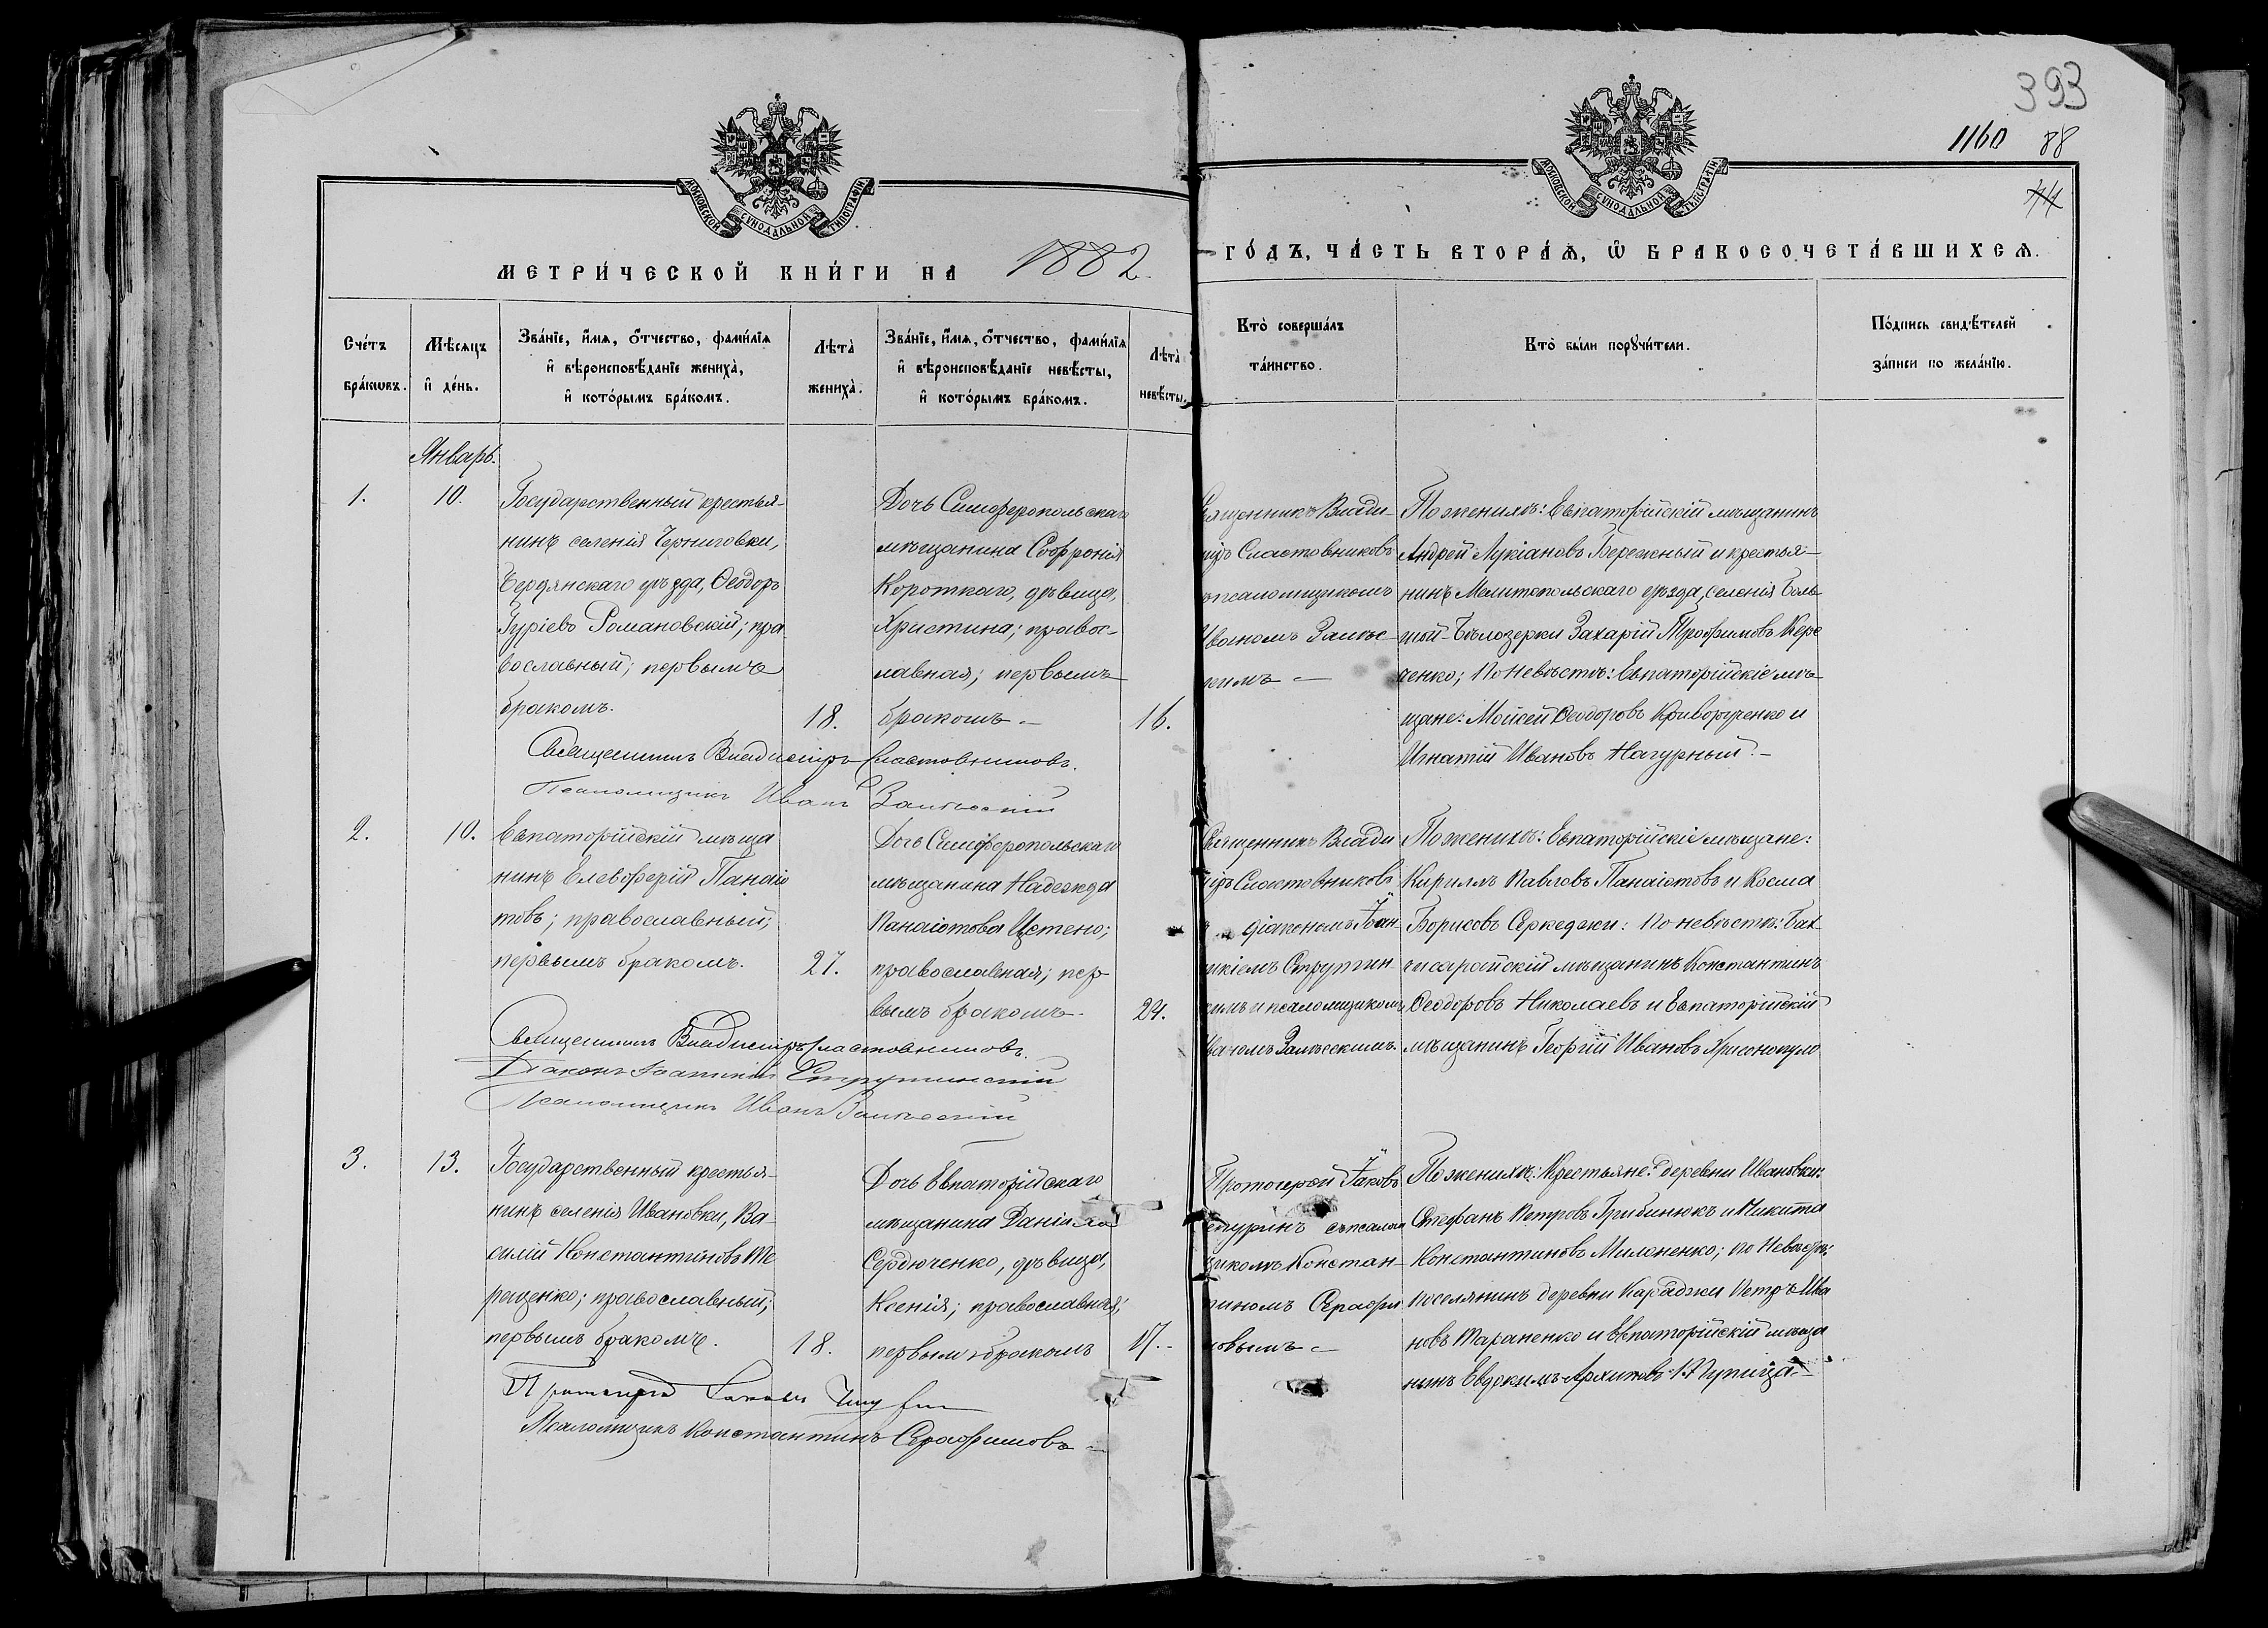 393
1160 88
МОСКОВСКОЙ СѴНОДАЛЬНОЙ ТИПОГРАФІИ
МОСКОВСКОЙ СѴНОДАЛЬНОЙ ТИПОГРАФІИ
МЕТРИ́ЧЕСКОЙ КНИ́ГИ НА 1882
ГО́ДЪ, ЧА́СТЬ ВТОРА́Ѧ, Ѡ҆ БРАКОСОЧЕТА́ВШИХСѦ.
Сче́тъ
бра́кѡвъ.
Мѣ́сѧцъ
и҆ де́нь.
Зва́нїе, и҆́мѧ, ѻ҆́тчество, фами́лїѧ
и҆ вѣроисповѣ́данїе жениха̀,
и҆ кото́рымъ бра́комъ.
Лѣта̀
жениха̀.
Зва́нїе, и҆́мѧ, ѻ҆́тчество, фами́лїѧ
и҆ вѣроисповѣ́данїе невѣ́сты,
и҆ кото́рымъ бра́комъ.
Лѣта̀
невѣ́сты.
Кто̀ соверша́лъ
та́инство.
Кто̀ бы́ли порꙋчи́тели.
По́дпись свидѣ́телей
за́писи по жела́нїю.
Январь.
1.
10.
Государственный крестья-
нинъ селенія Черниговки,
Бердянскаго уѣзда, Ѳеодоръ
Гуріевъ Романовскій; пра
вославный; первымъ
бракомъ.
18.
Дочь Симферопольскаго
мѣщанина Софронія
Короткаго, дѣвица,
Христина; правос-
лавная; первымъ
бракомъ. –
16.
Священникъ Влади-
міръ Сластовниковъ
съ псаломщикомъ
Иваномъ Залѣс-
кимъ –
По женихѣ: Евпаторійскій мѣщанинъ
Андрей Лукіановъ Бережный и крестья-
нинъ Мелитопольскаго уѣзда, селенія Боль-
шой-Бѣлозерки Захарій Трофимовъ Кере
ченко; По невѣстѣ: Евпаторійскіе мѣ-
щане: Мойсей Ѳеодоровъ Криворученко и
Игнатій Ивановъ Нагурный. –
Священникъ Владиміръ Сластовниковъ.
Псаломщикъ Иванъ Залѣсскій
2.
10.
Евпаторійскій мѣща
нинъ Елевферій Панаіо
товъ; православный;
первымъ бракомъ.
27.
Дочь Симферопольскаго
мѣщанина Надежда
Панаіотова Цстено;
православная; пер-
вымъ бракомъ.
24.
Священникъ Влади
міръ Сластовниковъ
діакономъ Іоан-
никіемъ Струтин-
скимъ и псаломщикомъ
Иваномъ Залѣсскимъ.
По женихѣ: Евпаторійскіе мѣщане:
Кириллъ Павловъ Панаіотовъ и Косма
Борисовъ Серкеджи: По невѣстѣ: Бах-
чисарайскій мѣщанинъ Константинъ
Ѳеодоровъ Николаевъ и Евпаторійскій
мѣщанинъ Георгій Ивановъ Хрисонопуло
Священникъ Владиміръ Сластовниковъ.
Діаконъ Іоанникій Струтинскій
Псаломщикъ Иванъ Залѣсскій
3.
13.
Государственный крестья-
нинъ селенія Ивановки, Ва-
силій Константиновъ Те
рещенко; православный;
первымъ бракомъ.
18.
Дочь Евпаторійскаго
мѣщанина Даніила
Сердюченко, дѣвица,
Ксенія; православная;
первымъ бракомъ
17. -
Протоіерей Іаковъ
Чепуринъ съ псалом
щикомъ Констан-
тиномъ Серафи
мовымъ –
По женихѣ: Крестьяне деревни Ивановки:
Стефанъ Петровъ Грибинюкъ и Никита
Константиновъ Милоненко; по невѣстѣ:
поселянинъ деревни Караджи Петръ Ива
новъ Тараненко и Евпаторійскій мѣща
нинъ Евдокимъ Архиповъ Пупица. –
Протоіерей Іаковъ Чепуринъ
Псаломщикъ Константинъ Серафимовъ –